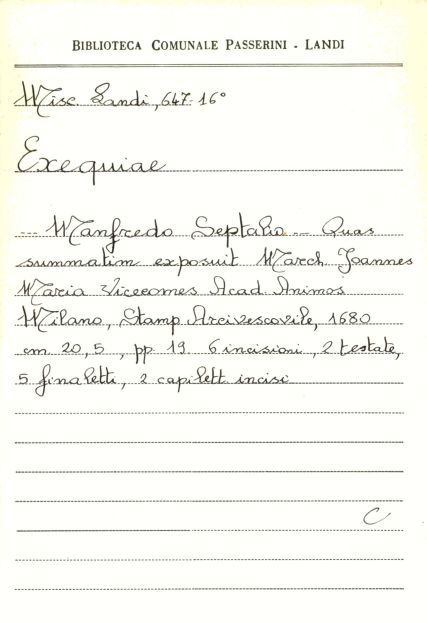 BIBLIOTECA COMUNALE PASSERINI - LANDI
Misc. Landi, 647. 16°
Exequiae
... Manfredo Septalio ... Quas
summatim exposuit March Joannes
Maria Vicecomes Acad Animos
Milano, Stamp Arcivescovile, 1680
cm. 20,5, pp 19. 6 incisioni, 2 testate,
5 finaletti, 2 capilett. incisi
C